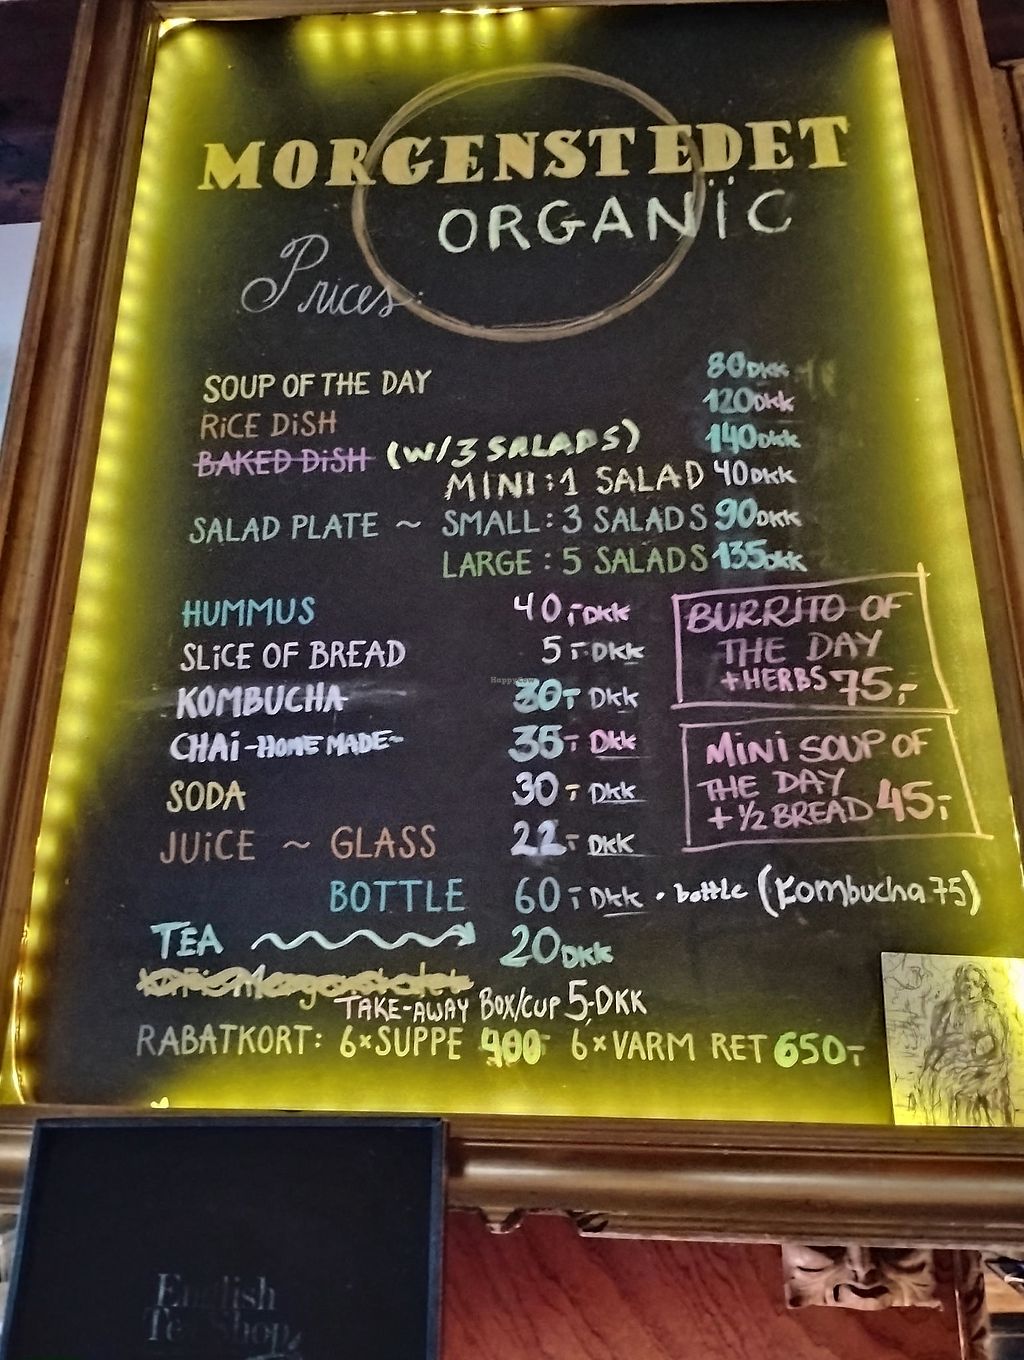 MORGENSTEDET
ORGANÏC
Prices:
SOUP OF THE DAY 80DKK
RiCE DiSH 120DKK
BAKED DiSH (W/3 SALADS) 140DKK
MINI:1 SALAD 40DKK
SALAD PLATE ~ SMALL: 3 SALADS 90DKK
LARGE: 5 SALADS 135DKK
HUMMUS 40,-DKK
SLiCE OF BREAD 5,-DKK
KOMBUCHA 30,- DKK
CHAi-HOME MADE- 35,- DKK
SODA 30,- DKK
JUiCE ~ GLASS 22,- DKK
BOTTLE 60,- DKK • bottle (Kombucha 75)
TEA 20DKK
TAKE-AWAY BOX/CUP 5,-DKK
RABATKORT: 6×SUPPE 400,- 6×VARM RET 650,-
BURRITO OF
THE DAY
+HERBS 75,-
MiNi SOUP OF
THE DAY
+ ½ BREAD 45,-
HappyCow
English
Tea Shop